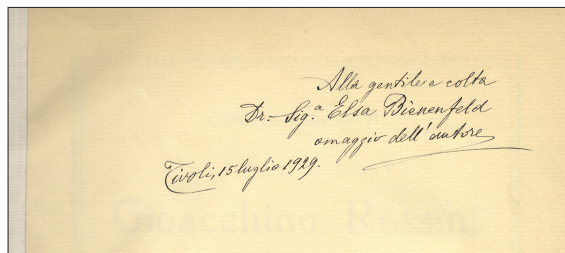 Alla gentile e colta
Dr. Sig.ª Elsa Bienenfeld
omaggio dell'autore
Tivoli, 15 luglio 1929.
Gioacchino Rossini